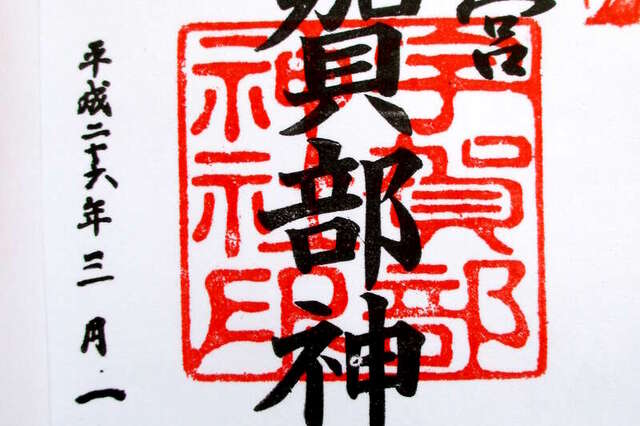 宮
賀部神
宇賀部
神社印
平成二十六年三月一